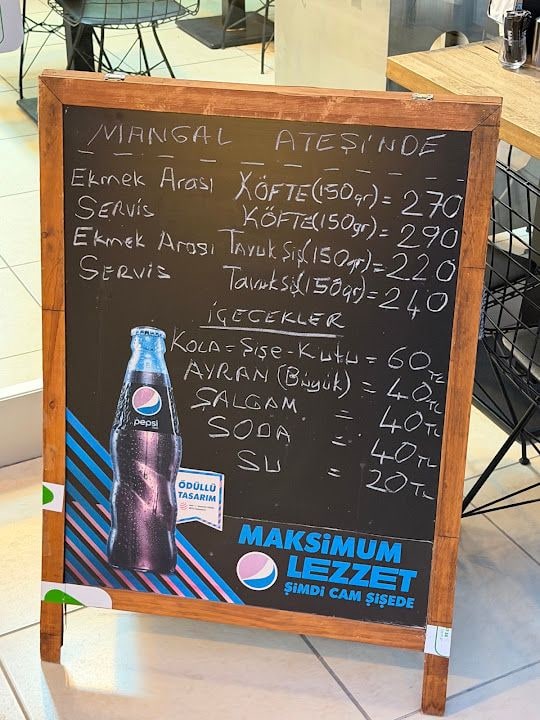 MANGAL ATEŞİNDE
Ekmek Arası KÖFTE(150gr)= 270
SERVİS KÖFTE(150gr)= 290
Ekmek Arası Tavuk Şiş(150gr)= 220
SERVİS Tavuk Şiş(150gr)= 240
İÇECEKLER
KOLA= Şişe-Kutu = 60 TL
AYRAN (Büyük) = 40 TL
ŞALGAM = 40 TL
SODA = 40 TL
SU = 20 TL
pepsi
ÖDÜLLÜ
TASARIM
MAKSiMUM
LEZZET
ŞiMDi CAM ŞiŞEDE